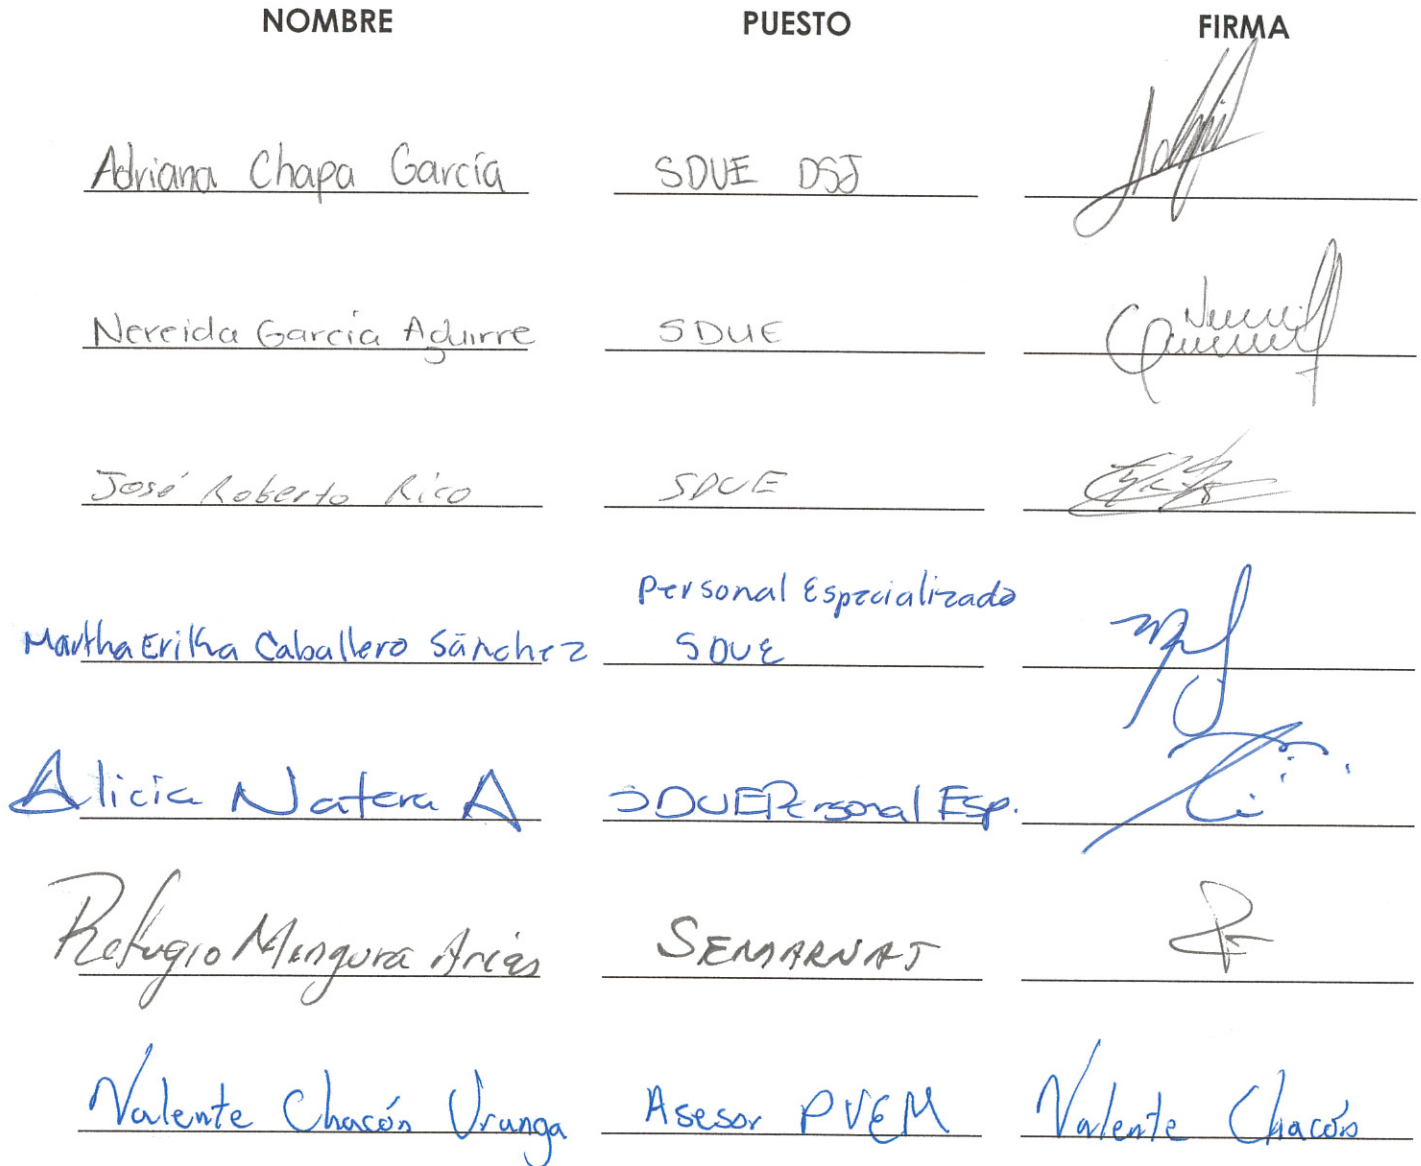 NOMBRE PUESTO FIRMA
Adriana Chapa García SDUE DSJ
Nereida García Aguirre SDUE
José Roberto Rico SDUE
Personal Especializado
Martha Erika Caballero Sánchez SDUE
Alicia Natera A SDUE Personal Esp.
Refugio Mingura Arias SEMARNAT
Valente Chacón Uranga Asesor PVEM Valente Chacón